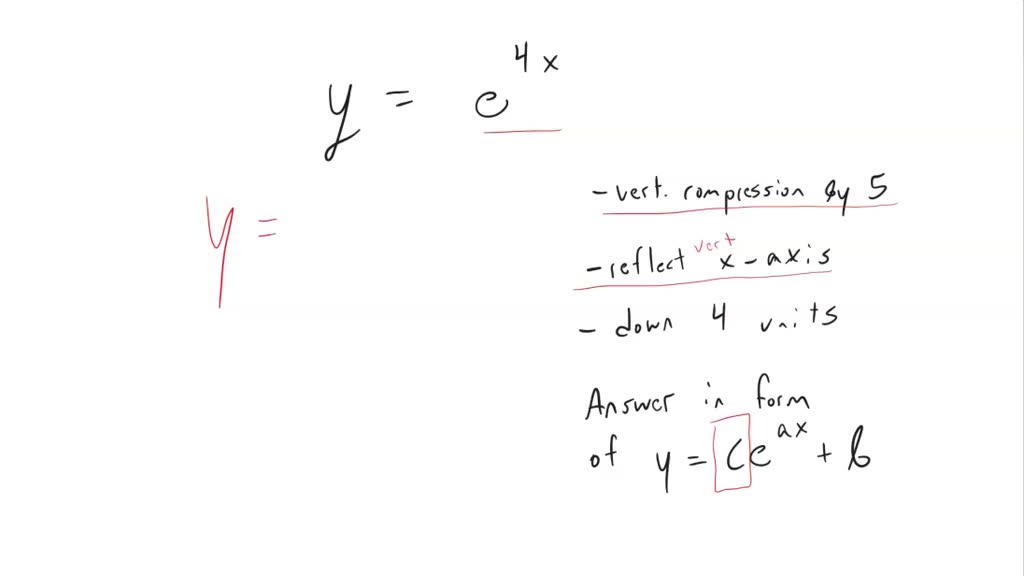 y = e^{4x}
y =
- vert. compression by 5
- reflect vert x-axis
- down 4 units
Answer in form
of y = Ce^{ax} + b